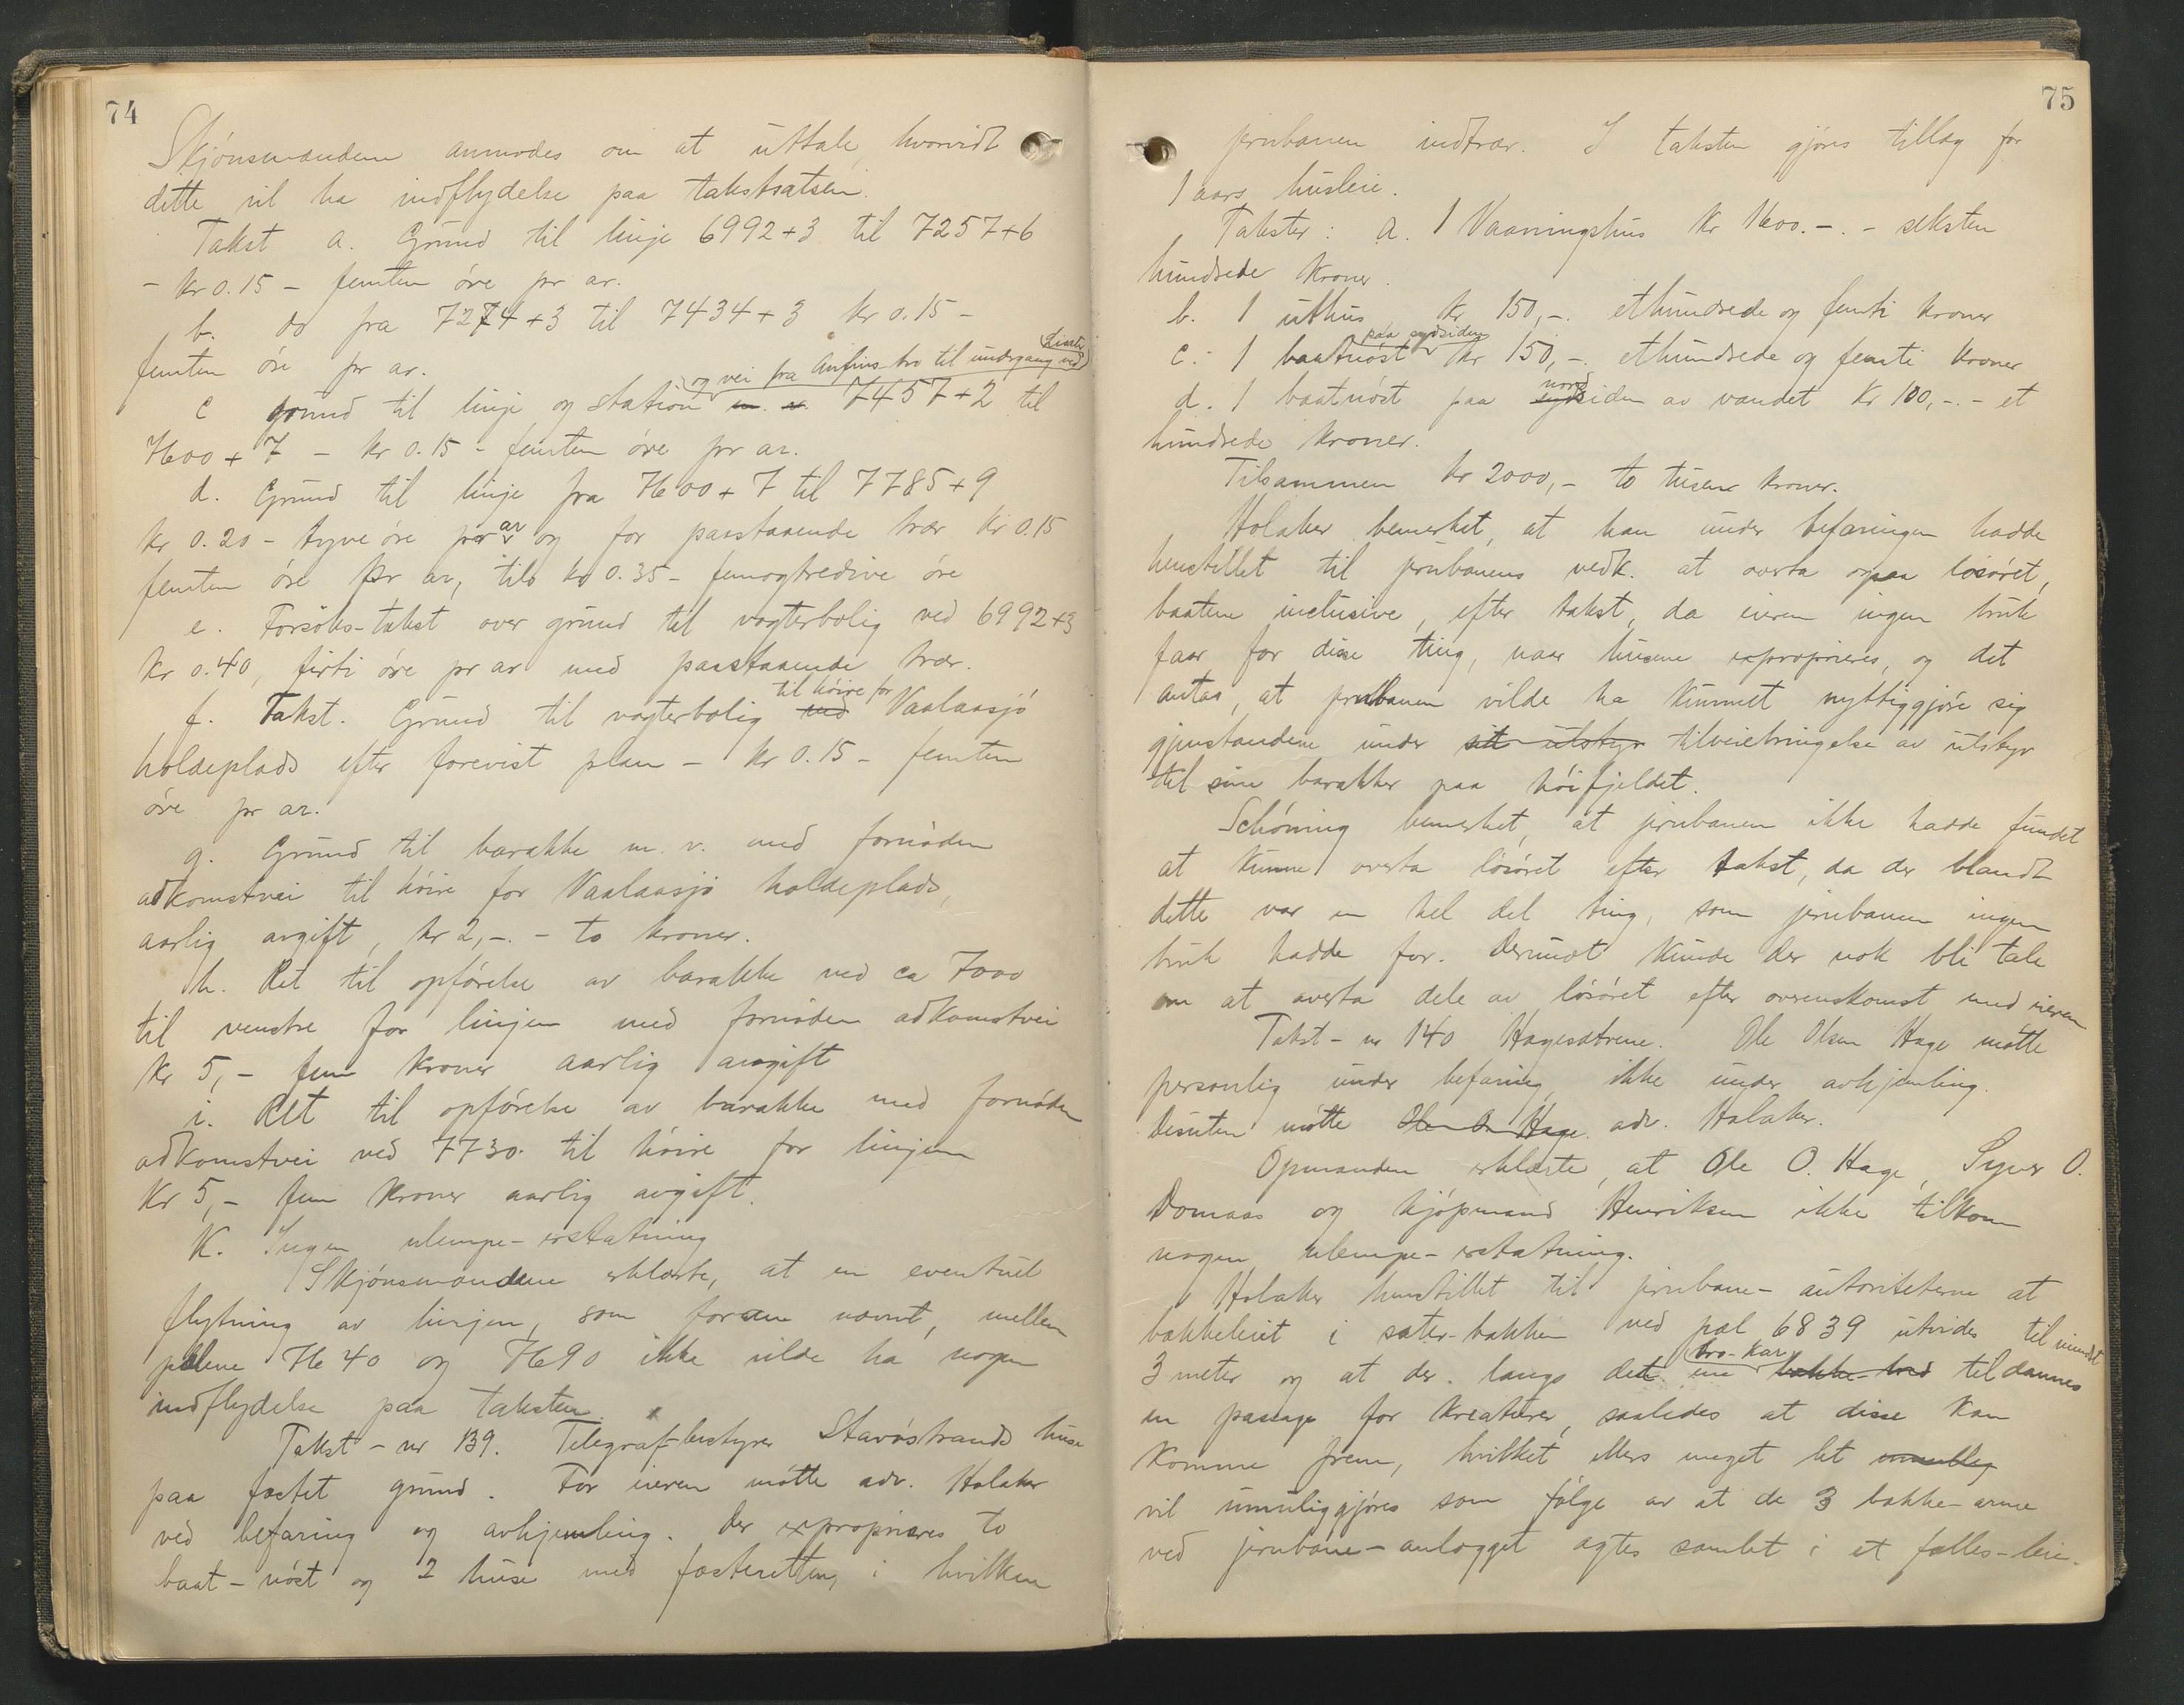 74
Skjönsmændene anmodes om at uttale, hvorvidt
dette vil ha indflydelse paa takstsatsen.
Takst a. Grund til linje 6992+3 til 7257+6
- kr 0.15 - femten öre pr ar.
b. do fra 7274+3 til 7434+3 kr 0.15 -
femten öre pr ar.
og vei fra Anfins-bro til undergang ved
c grund til linje og station m. v. 7457+2 til
7600+7 - kr 0.15 - femten öre pr ar.
d. Grund til linje fra 7600+7 til 7785+9
kr 0.20 - tyve öre pr ar og for paastaaende trær kr 0.15
femten öre pr ar, tils kr 0.35 - femogtredive öre
e. Forsöks-takst over grund til vogterbolig ved 6992+3
kr 0.40, firti öre pr ar med paastaaende trær.
til höire for
f. Takst. Grund til vogterbolig ved Vaalaasjö
holdeplads efter forevist plan - kr 0.15 - femten
öre pr ar.
g. Grund til barakke m. v. med fornöden
adkomstvei til höire for Vaalaasjö holdeplads,
aarlig avgift, kr 2,-. - to kroner.
h. Ret til opförelse av barakke ved ca 7000
til venstre for linjen med fornöden adkomstvei
kr 5,- fem kroner aarlig avgift
i. Ret til opförelse av barakke med fornöden
adkomstvei ved 7730 til höire for linjen
Kr 5,- fem kroner aarlig avgift.
K. Ingen ulempe-erstatning
Skjönsmændene erklærte, at en eventuel
flytning av linjen, som foran nævnt, mellem
pælene 7640 og 7690 ikke vilde ha nogen
indflydelse paa taksten.
Takst - nr 139. Telegraf-bestyrer Stavöstrands huse
paa fæstet grund. For eieren mötte adv. Holaker
ved befaring og avhjemling. Der exproprieres to
baat-nöst og 2 huse med fæsteretten, i hvilken
75
jernbanen indtrær. I taksten gjöres tillæg for
1 aars husleie.
Takster: a. 1 Vaaningshus kr 1600.-. - seksten
hundrede kroner.
b. 1 uthus kr 150,-. ethundrede og femti kroner
paa sydsiden
c. 1 baatnöst kr 150,-. ethundrede og femti kroner
nord
d. 1 baatnöst paa sydsiden av vandet kr 100,-. - et
hundrede kroner.
Tilsammen kr 2000,- to tusen kroner.
Holaker bemerket, at han under befaringen hadde
henstillet til jernbanens vedk. at overta ogsaa lösöret,
baatene inclusive, efter takst, da eieren ingen bruk
faar for disse ting, naar husene exproprieres, og det
antas, at jernbanen vilde ha kunnet nyttiggjöre sig
gjenstandene under sit utstyr tilveiebringelse av utstyr
til sine barakker paa höifjeldet.
Schöning bemerket, at jernbanen ikke hadde fundet
at kunne overta lösöret efter takst, da der blandt
dette var en hel del ting, som jernbanen ingen
bruk hadde for. Derimot kunde der nok bli tale
om at overta dele av lösöret efter overenskomst med eieren
Takst - nr 140 Hagesætrene. Ole Olsen Hage mötte
personlig under befaring, ikke under avhjemling.
Desuten mötte Ole O. Hage adv. Holaker.
Opmanden erklærte, at Ole O. Hage, Syver O.
Domaas og kjöpmand Henriksen ikke tilkom
nogen ulempe-erstatning.
Holaker henstillet til jernbane-autoriteterne at
bækkeleiet i sæter-bækken ved pæl 6839 utvides til mindst
bro-kar
3 meter og at der langs det ene bække-bred tildannes
en passage for kreaturer, saaledes at disse kan
komme frem, hvilket ellers meget let umulig
vil umuliggjöres som fölge av at de 3 bække-arme
ved jernbane-anlægget agtes samlet i et fælles-leie.